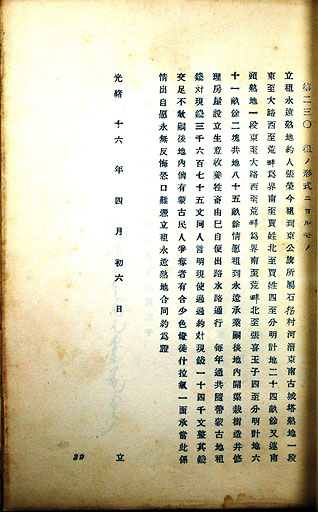 第二三〇 租ノ形式ニヨルモノ
立租永遠熟地約人張榮今租到東公旗所屬石拐村河漕東南古城塔熟地一段
東至大路西至荒畔爲界南至賈姓北至賈姓四至分明計地二十四畝餘又連南
頭熟地一段東至大路西至荒畔爲界南至荒畔北至張喜玉子四至分明計地六
十一畝餘二塊共地八十五畝餘情愿租到永遠承業嗣後地內開渠栽樹造井修
理房屋設立生意收養牲畜由己自便出路水路通行 每年通共隨帶蒙古地租
錢対現錢三千六百七十五文同人言明現使過過約対現錢一十四千文整其錢
交足不欠嗣後地內倘有蒙古民人爭奪者有合少色儍徒什拉氣一面承當此係
情出自愿永無反悔恐口難憑立租永遠熟地合同約爲證
光緒 十六 年 四 月 初六 日 立
39